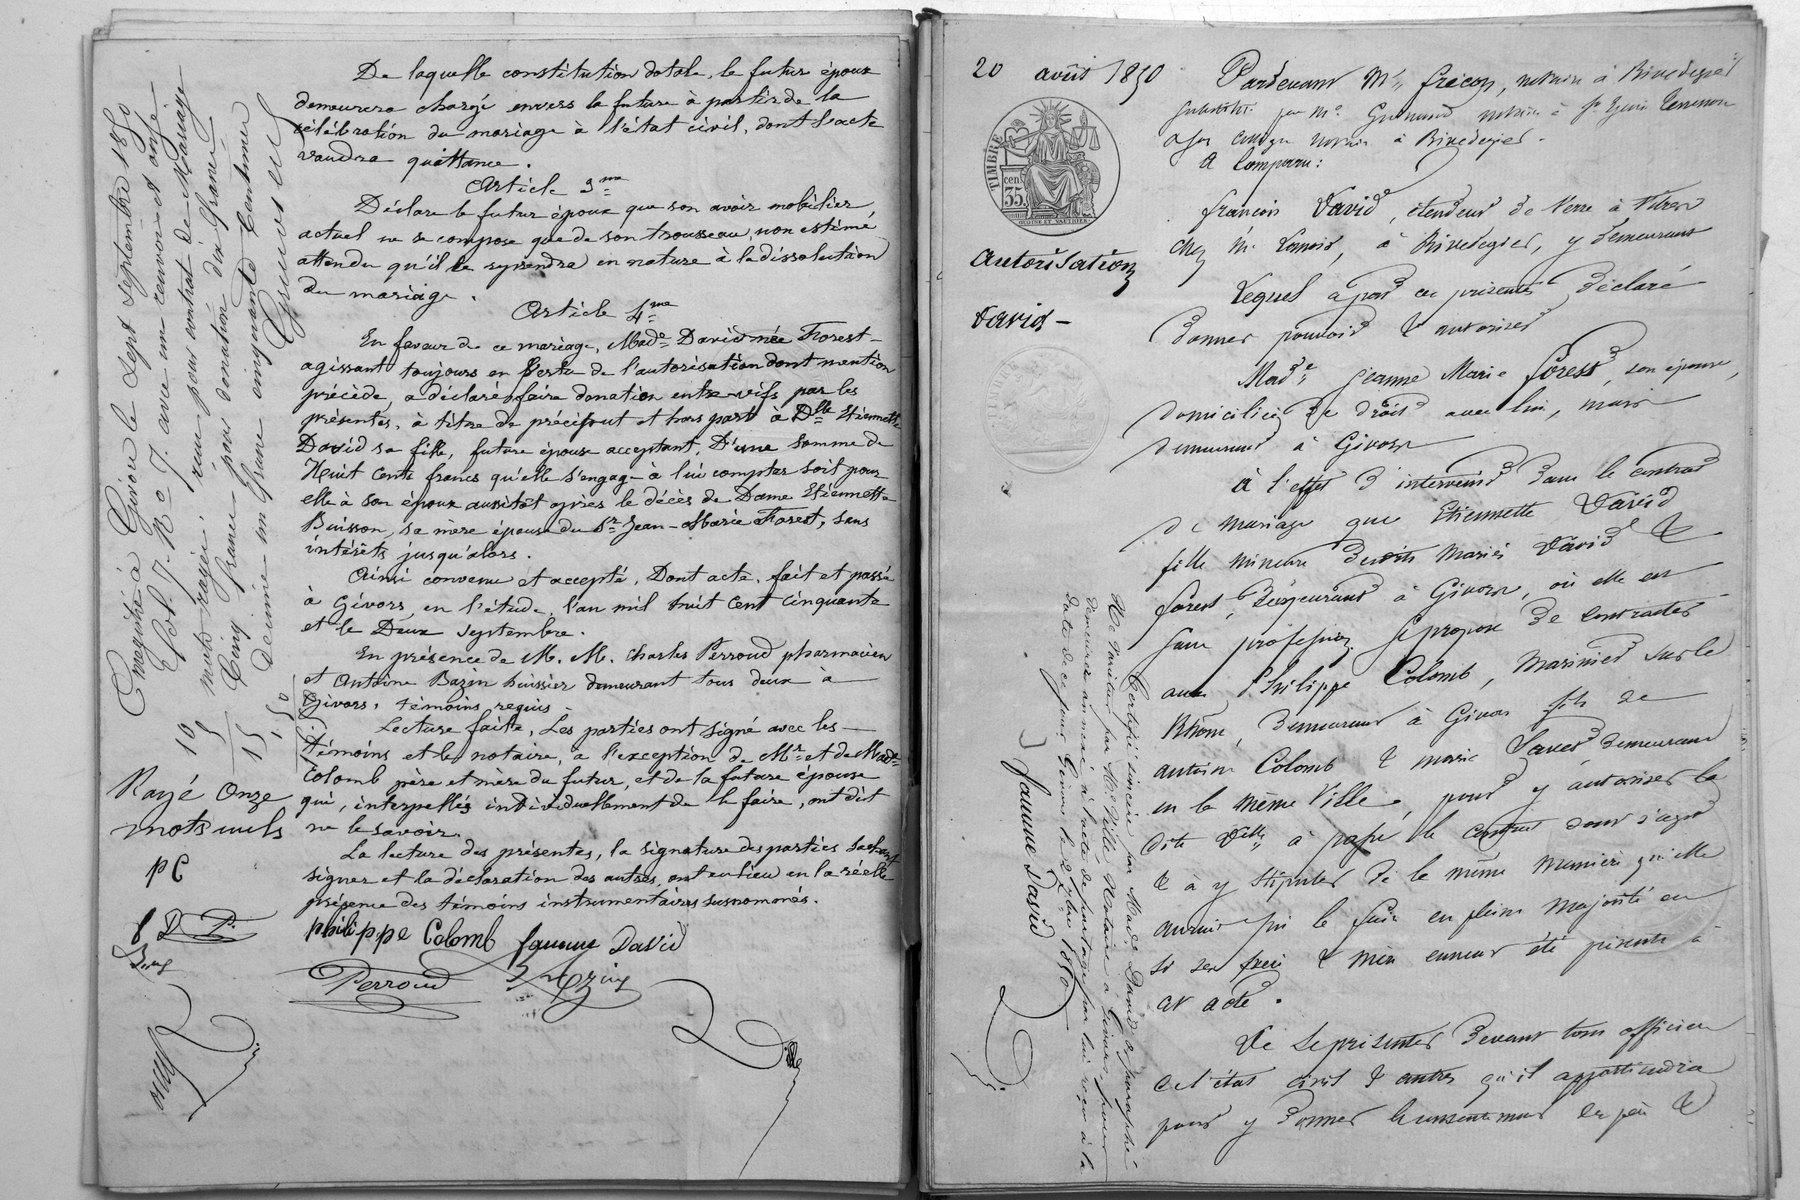 De laquelle constitution dotale, le futur époux
demeurera chargé envers la future à partir de la
célébration du mariage à l'état civil, dont l'acte
vaudra quittance.
Article 3me
Déclare le futur époux que son avoir mobilier
actuel ne se compose que de son trousseau, non estimé,
attendu qu'il le reprendra en nature à la dissolution
du mariage.
Article 4me
En faveur de ce mariage, Made David née Forest
agissant toujours en vertu de l'autorisation dont mention
précède, a déclaré faire donation entre-vifs par les
présentes, à titre de préciput et hors part à Dlle Etiennette
David sa fille, future épouse acceptant, D'une somme de
Huit cents francs qu'elle s'engage à lui compter soit pour
elle à son époux aussitôt après le décès de Dame Etiennette
Buisson, sa mère épouse du Sr Jean-Marie Forest, sans
intérêts jusqu'alors.
Ainsi convenu et accepté, Dont acte, fait et passé
à Givors, en l'étude, l'an mil huit cent cinquante
et le Deux Septembre.
En présence de M. M. Charles Perroud pharmacien
et Antoine Bazin huissier demeurant tous deux à
Givors, témoins requis.
Lecture faite, Les parties ont signé avec les
témoins et le notaire, à l'exception de Mr et de Made
Colomb père et mère du futur, et de la future épouse
qui, interpellés individuellement de le faire, ont dit
ne le savoir.
La lecture des présentes, la signature des parties sachant
signer et la déclaration des autres, ont eu lieu en la réelle
présence des témoins instrumentaires susnommés.
philippe Colomb Jeanne David
Perroud Bazin
Enregistré à Givors le sept septembre 1850
mots rayés: reçu pour contrat de Mariage
Cinq francs pour donation du franc
Décime un franc cinquante Centimes
10
5
15
1,50
Rayé Onze
mots nuls
p C
20 août 1850
TIMBRE
35
Autorisation
David
Pardevant Me frécon, notaire à Rivedegier
notaire à Rivedegier.
A Comparu:
françois David, étendeur de Verre à Vitres
chez Mr, à Rivedegier, y demeurant
Lequel a par ces présentes Déclaré
Donner pouvoir & autoriser
Made Jeanne Marie forest, son épouse,
domiciliée de droit avec lui, mais
demeurant à Givors
A l'effet D'intervenir Dans le contrat
de mariage que Etiennette David
fille mineure desdits Mariés David &
forest, Demeurant à Givors, où elle est
sans profession, se propose de contracter
avec Philippe Colomb, Marinier sur le
Rhône, Demeurant à Givors fils de
antoine Colomb & marie Demeurant
en la même Ville, pour y autoriser la
Dite Dlle à passer le Contrat dont s'agit
& à y stipuler de la même manière qu'elle
aurait pu le faire en pleine Majorité ou
si ses père & mère eussent été présents à
cet acte.
De se présenter Devant tous officiers
de l'état civil & autres qu'il appartiendra
pour y Donner le consentement des père &
Certifié sincère par Made David & paraphé
Ne varietur par Me Ville, Notaire à Givors, pour
demeurer annexé à l'acte de partage par lui reçu à la
date de ce jour Givors le 2 7bre 1850
Jeanne David